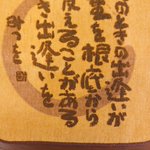 のときの出逢いが
を根底から
変えることがある
き出逢いを
みつを